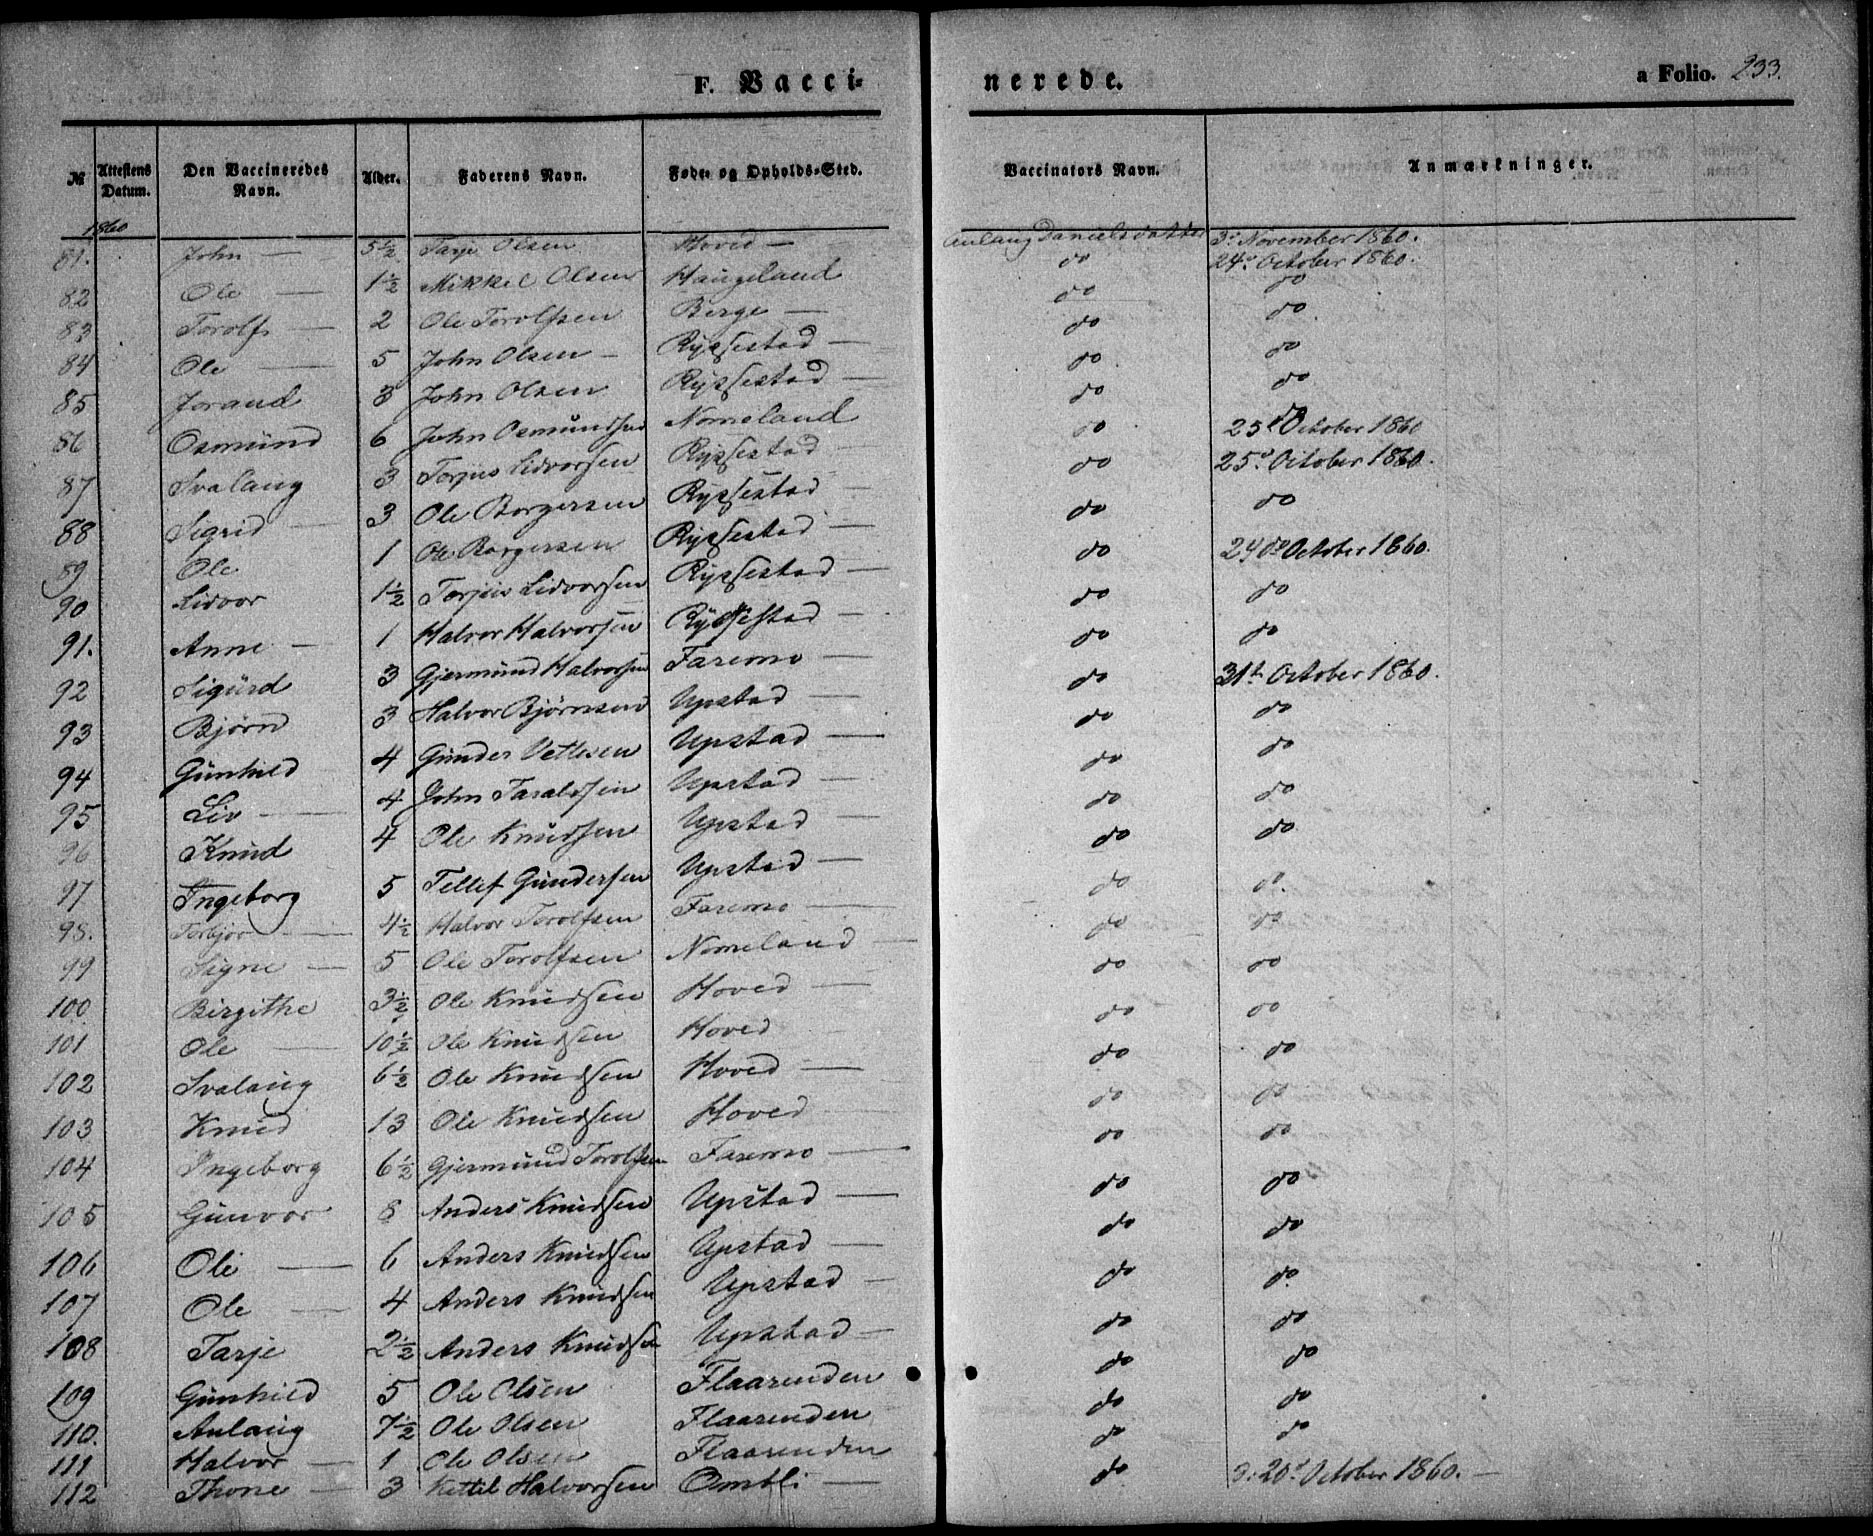 F. Vaccinerede. a Folio. 233.
№ Attestens Datum. Den Vaccineredes Navn. Alder. Faderens Navn. Føde- og Opholds-Sted. Vaccinators Navn. Anmærkninger.
1860
81. John — 5½ Tarje Olsen Hoved — Aulaug Danielsdatter 3: November 1860.
82 Ole — 1½ Mikkel Olsen Haugeland do 24d October 1860.
83 Torolf — 2 Ole Torolfsen Berge — do do
84 Ole — 5 John Olsen — Ryssestad — do do
85 Jorand 3 John Olsen Ryssestad — do do
86 Osmund 6 John Osmundsen Nomeland do do
87 Svalaug 3 Torjus Lidvorsen Ryssestad — do 25d October 1860
88 Sigrid — 3 Ole Borgersen Ryssestad — do 25d October 1860.
89 Ole 1 Ole Borgersen Ryssestad — do do
90 Lidvor 1½ Torjus Lidvorsen Ryssestad — do 24d October 1860.
91. Anne — 1 Halvor Halvorsen Ryssestad — do do
92 Sigurd 3 Gjermund Halvorsen Faremo — do do
93 Bjørn 3 Halvor Bjørnsen Upstad — do 31t October 1860.
94 Gunhild 4 Gunder Vettesen Upstad — do do
95 Liv — 4 John Taraldsen Upstad — do do
96 Knud 4 Ole Knudsen Upstad — do do
97 Ingeborg 5 Tellef Gundersen Upstad — do do
98. Torbjør — 4½ Halvor Torolfsen Faremo — do do.
99 Signe — 5 Ole Torolfsen Nomeland — do do
100 Birgithe 3½ Ole Knudsen Hoved — do do
101 Ole — 10½ Ole Knudsen Hoved do do
102 Svalaug 6½ Ole Knudsen Hoved — do do
103 Knud 13 Ole Knudsen Hoved — do do
104 Ingeborg 6½ Gjermund Torolfsen Faremo — do do
105 Gunvor 8 Anders Knudsen Upstad — do do
106 Ole — 6 Anders Knudsen Upstad — do do
107 Ole — 4 Anders Knudsen Upstad — do do
108 Tarje 2½ Anders Knudsen Upstad — do do
109 Gunhild 5 Ole Olsen Flaarenden do do
110. Aulaug 7½ Ole Olsen Flaarenden do do
111 Halvor — 1 Ole Olsen Flaarenden do do
112 Thone — 3 Kettil Halvorsen Ombli — do d: 20d October 1860. —